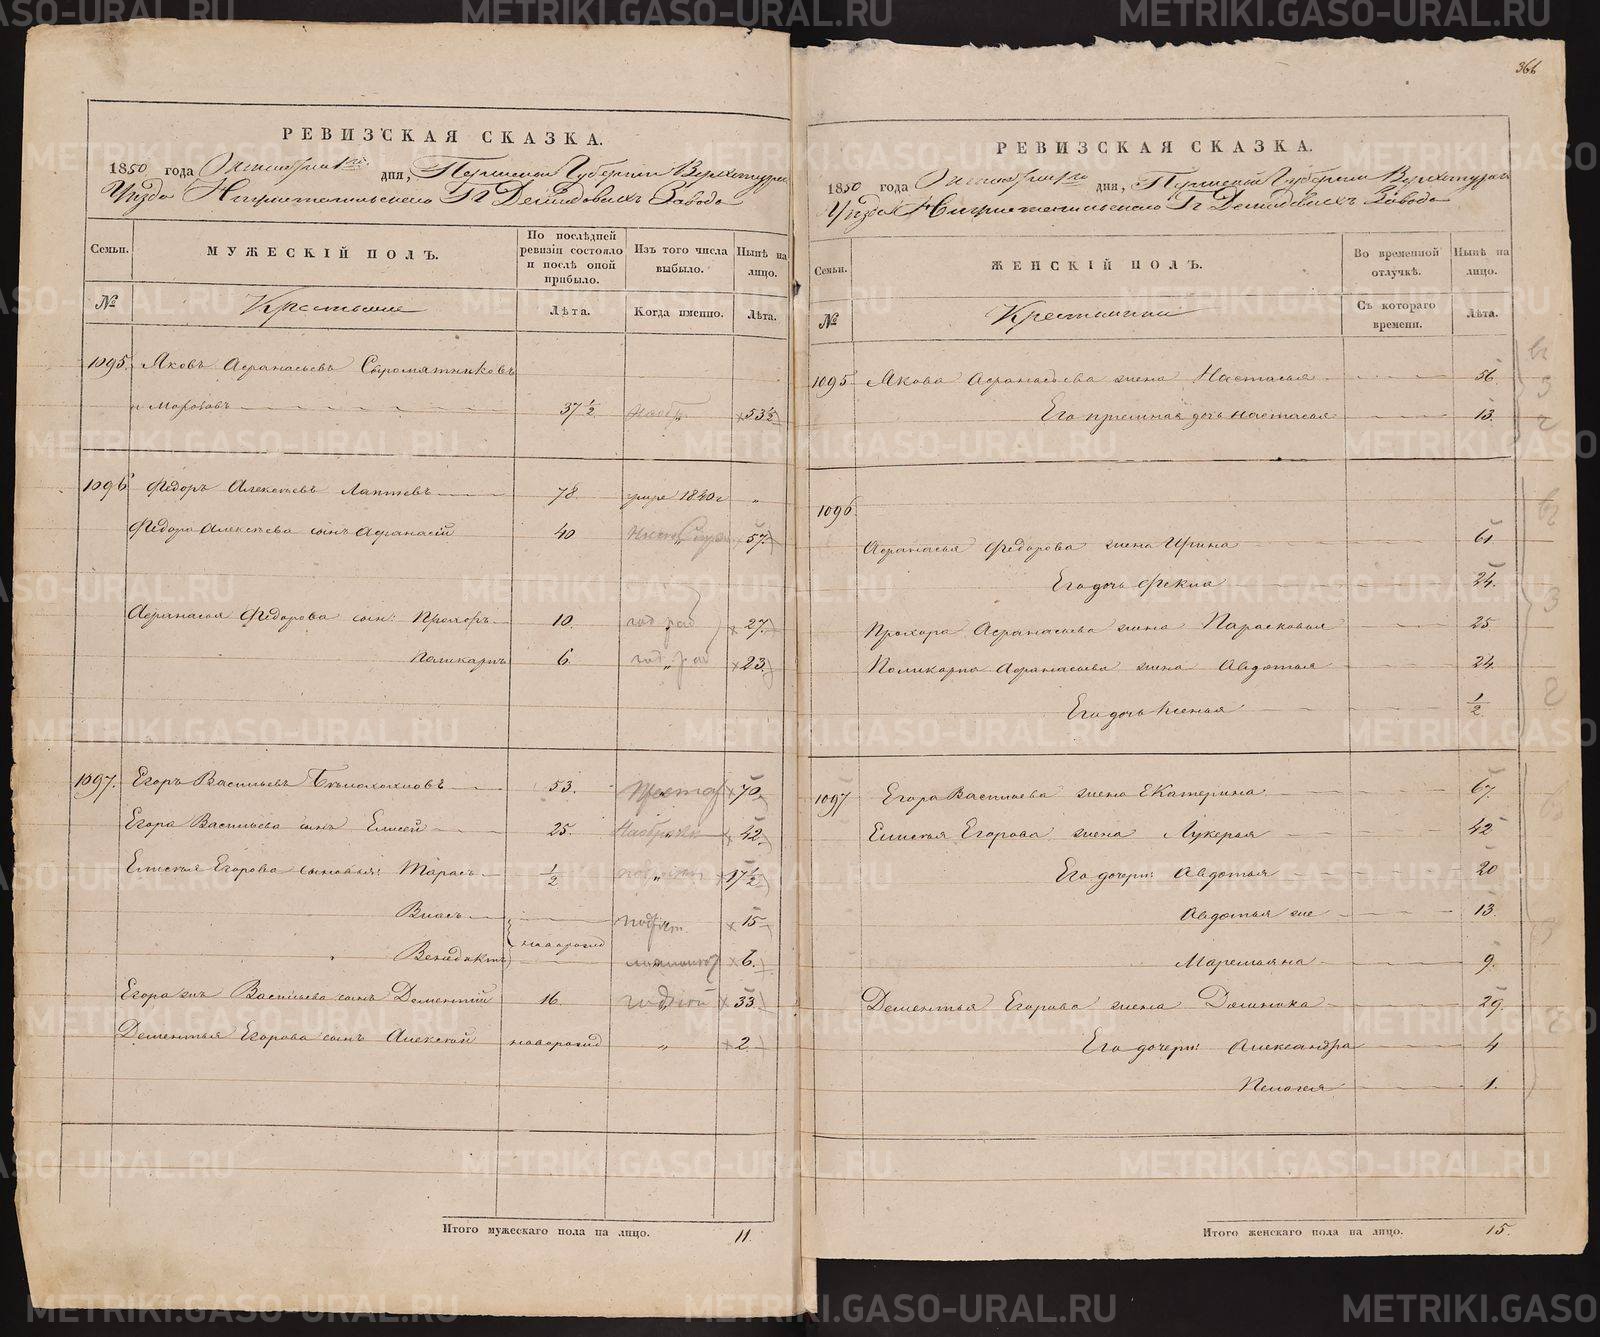 РЕВИЗСКАЯ СКАЗКА.
1850 года Октября 1го дня, Пермской Губернии Верхотурск
Уезда Нижнетагильскаго Гг Демидовыхъ Завода
Семьи.
МУЖЕСКІЙ ПОЛЪ.
По послѣдней ревизіи состояло и послѣ оной прибыло.
Изъ того числа выбыло.
Нынѣ на лицо.
№
Крестьяне
Лѣта.
Когда именно.
Лѣта.
1095 Яковъ Афанасьевъ Сыромятниковъ
и Морозовъ 37 1/2 53 1/2
1096 Федоръ Алексѣевъ Лаптевъ 78 умре 1840 г „
Федора Алексѣева сынъ Афанасій 40 57
Афанасья Федорова сын: Прохоръ 10. 27
Поликарпъ 6. 23
1097. Егоръ Васильевъ 53. 70
Егора Васильева сынъ Елисей 25. 42
Елисѣя Егорова сыновья: Тарасъ 1/2 „ 17 1/2
Власъ 15
новорожд
Венедиктъ 6.
Егора Васильева сынъ Дементій 16. 33
Дементья Егорова сынъ Алексѣй новорожд „ 2
Итого мужескаго пола на лицо. 11.
366
РЕВИЗСКАЯ СКАЗКА.
1850 года Октября 1го дня, Пермской Губерніи Верхотурск
Уезда Нижнетагильскаго Гг Демидовыхъ Завода
Семьи.
ЖЕНСКІЙ ПОЛЪ.
Во временной отлучкѣ.
Нынѣ на лицо.
№
Крестьянки
Съ котораго времени.
Лѣта.
1095 Якова Афанасьева жена Настасья 56
Его приемная дочь Настасья 13.
1096.
Афанасья Федорова жена Ирина 61
Его дочь Фекла 24.
Прохора Афанасьева жена Парасковья 25
Поликарпа Афанасьева жена Авдотья 24.
Его дочь Ксенья 1/2
1097 Егора Васильева жена Екатерина 67
Елисѣя Егорова жена Лукерья 42
Его дочери: Авдотья 20
Авдотья же 13
Маремьяна 9.
Дементья Егорова жена Домника 29
Его дочери: Александра 4
Пелагея 1.
Итого женскаго пола на лицо. 15.
METRIKI.GASO-URAL.RU